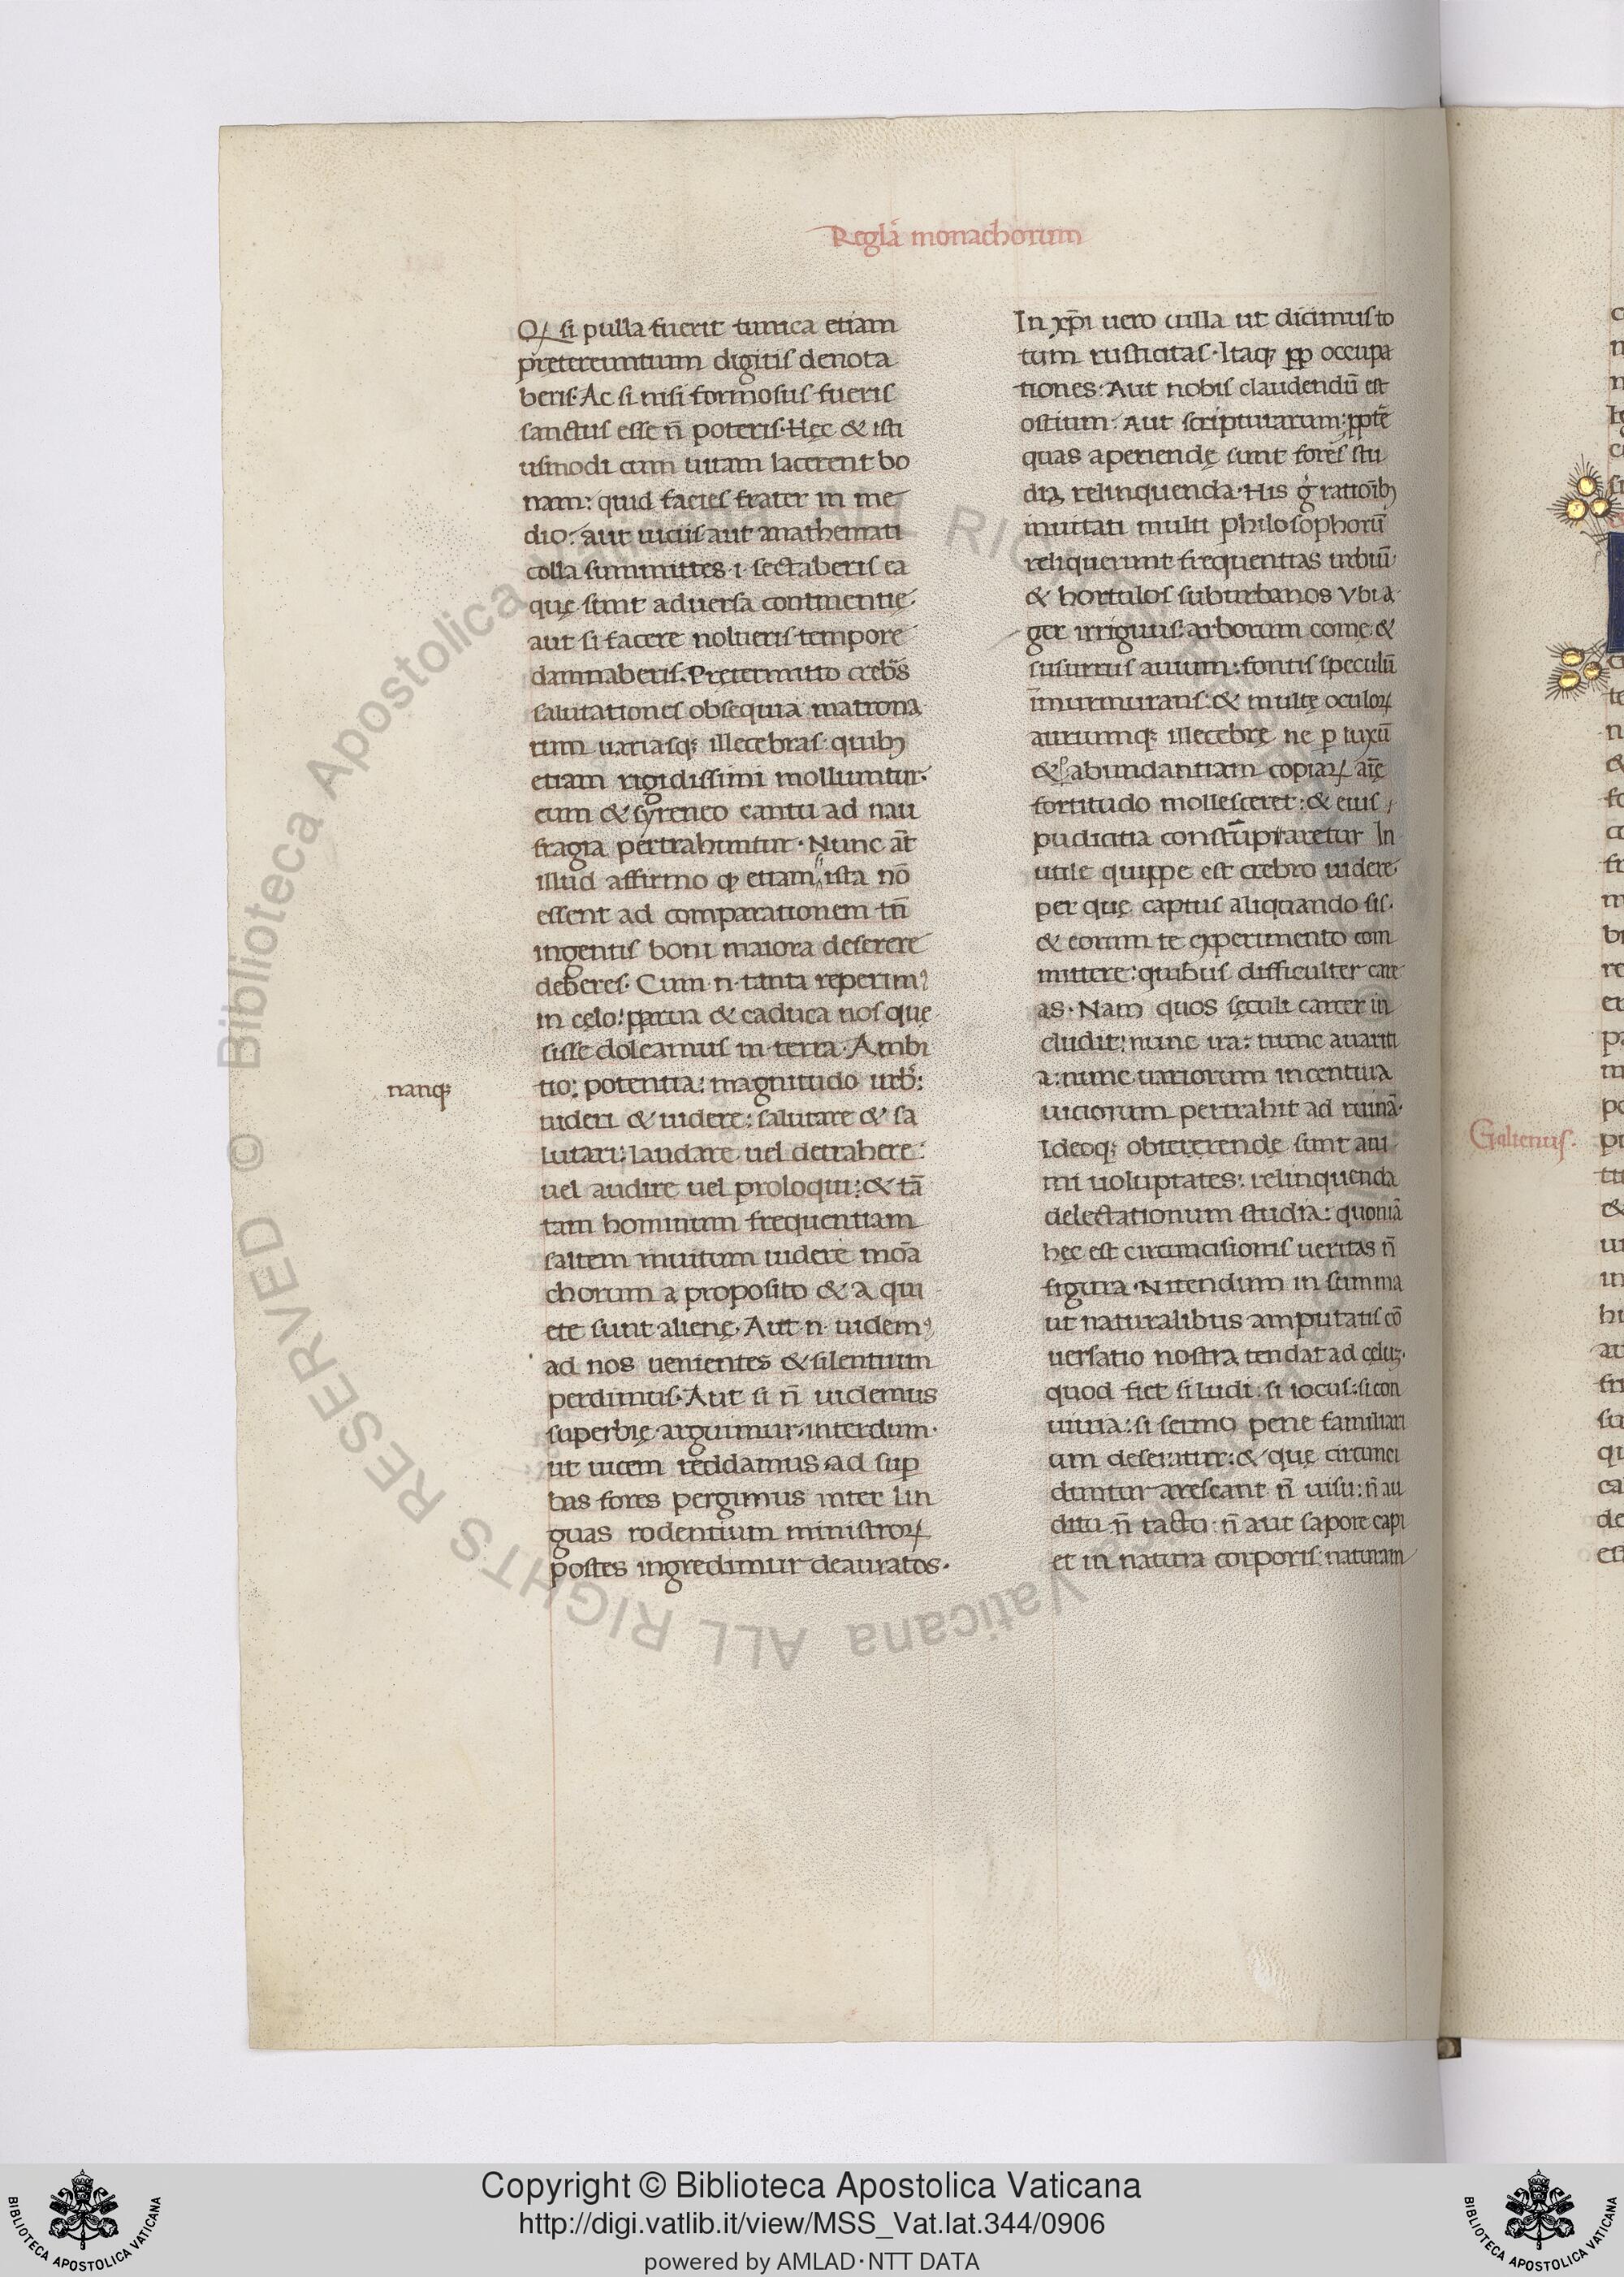 Regłã monachorum
Qꝝ si pulla fuerit tunica etiam
pretereuntium digitis denota
beris. Ac si nisi formosus fueris
sanctus esse n̄ poteris. Hęc & isti
usmodi cum uitam lacerent bo
nam: quid facies frater in me
dio: aut uiciis aut anathemati
colla summittes .i. sectaberis ea
quę sunt aduersa continentię.
aut si facere nolueris tempore
damnaberis. Pretermitto creb̃s
salutationes obsequia matrona
rum uariasqꝫ illecebras quibꝫ
etiam rigidissimi molluntur.
cum & syreneo cantu ad nau
fragia pertrahuntur. Nunc aũt
illud affirmo qꝫ etiam si ista nō
essent ad comparationem tn̄
ingentis boni maiora deserere
deberes. Cum .n. tanta reperimꝰ
in cęlo: parua & caduca nos quę
sisse doleamus in terra. Ambi
nanqꝫ
tio: potentia: magnitudo urb̃:
uideri & uidere: salutare & sa
lutari: laudare uel detrahere:
uel audire uel proloqui: & tā
tam hominum frequentiam
saltem inuitum uidere mōa
chorum a proposito & a qui
ete sunt alienę. Aut .n. uidemꝰ
ad nos uenientes & silentium
perdimus. Aut si n̄ uidemus
superbię arguimur. interdum.
ut uicem reddamus ad sup̱
bas fores pergimus inter lin
guas rodentium ministroꝝ
postes ingredimur deauratos.
In xp̄i uero uilla ut dicimus to
tum rusticitas. Itaqꝫ ꝓp occupa
tiones: Aut nobis claudendū est
ostium: Aut scripturarum: ꝓptẽ
quas aperiendę sunt fores stu
dia relinquenda. His g̊ rationibꝫ
inuitati multi philosophorū
reliquerunt frequentias urbiū.
& hortulos suburbanos Vbi a
ger irriguus: arborum comę &
susurrus auium: fontis speculū
īmurmurans: & multę oculoꝝ
auriumqꝫ illecebrę ne p̱ luxū
& abundantiam copiaꝝ aīę
fortitudo mollesceret: & eius
pudicitia constupraretur In
utile quippe est crebro uidere
per quę captus aliquando sis.
& eorum te experimento com
mittere: quibus difficulter care
as. Nam quos sęculi carcer in
cludit: nunc ira: nunc auariti
a: nunc uariorum incentiua
uiciorum pertrahit ad ruinā.
Ideoqꝫ obtererendę sunt ani
mi uoluptates: relinquenda
delectationum studia: quoniā
hęc est circuncisionis ueritas n̄
figura. Nitendum in summa
ut naturalibus amputatis cō
uersatio nostra tendat ad cęluꝫ.
quod fiet si ludi: si iocus: si con
uiuia: si sermo pene familiari
um deseratur: & quę circunci
duntur arescant n̄ uisu: n̄ au
ditu n̄ tactu: n̄ aut sapore capi
et in natura corporis: naturam
Galienus.
Copyright © Biblioteca Apostolica Vaticana
http://digi.vatlib.it/view/MSS_Vat.lat.344/0906
powered by AMLAD·NTT DATA